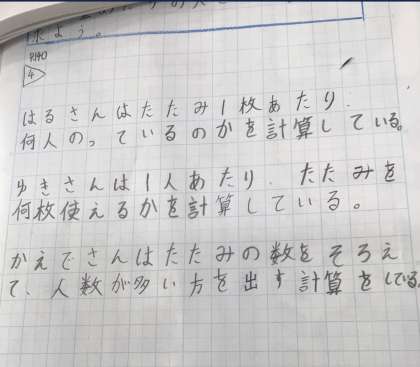 求よう。
P.140
4
はるさんはたたみ1枚あたり
何人のっているのかを計算している。
ゆきさんは1人あたり、たたみを
何枚使えるかを計算している。
かえでさんはたたみの数をそろえ
て、人数が多い方を出す計算をしている。